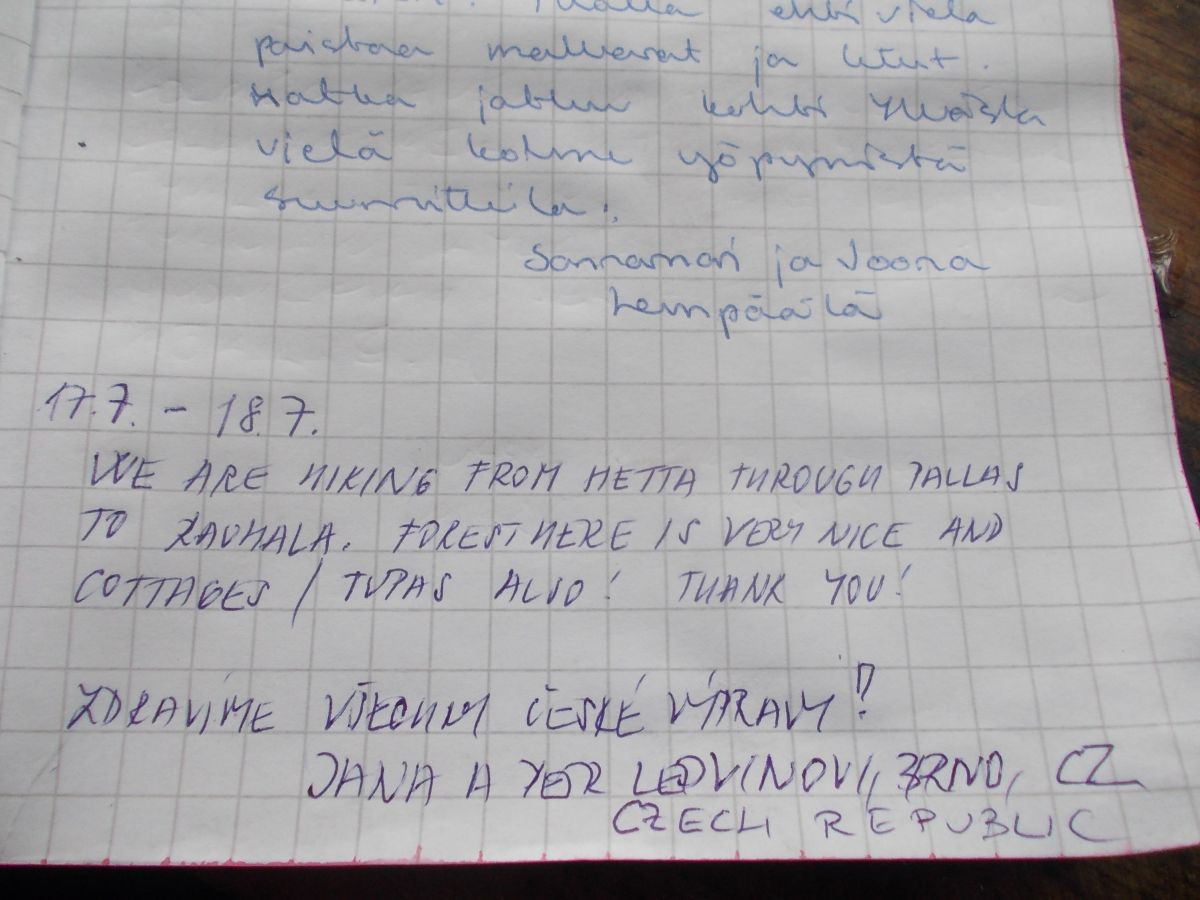 ehti vielä
paistaa makkarat ja letut.
Matka jatkuu kohti
vielä kolme yöpymistä
suunnitteilla.
ja Joona
Lempäälä
17.7. - 18.7.
WE ARE HIKING FROM HETTA THROUGH PALLAS
TO RAUHALA. FOREST HERE IS VERY NICE AND
COTTAGES / TUPAS ALSO! THANK YOU!
ZDRAVÍME VŠECHNY ČESKÉ VÝPRAVY!
JANA A LEDVINOVI, BRNO, CZ
CZECH REPUBLIC